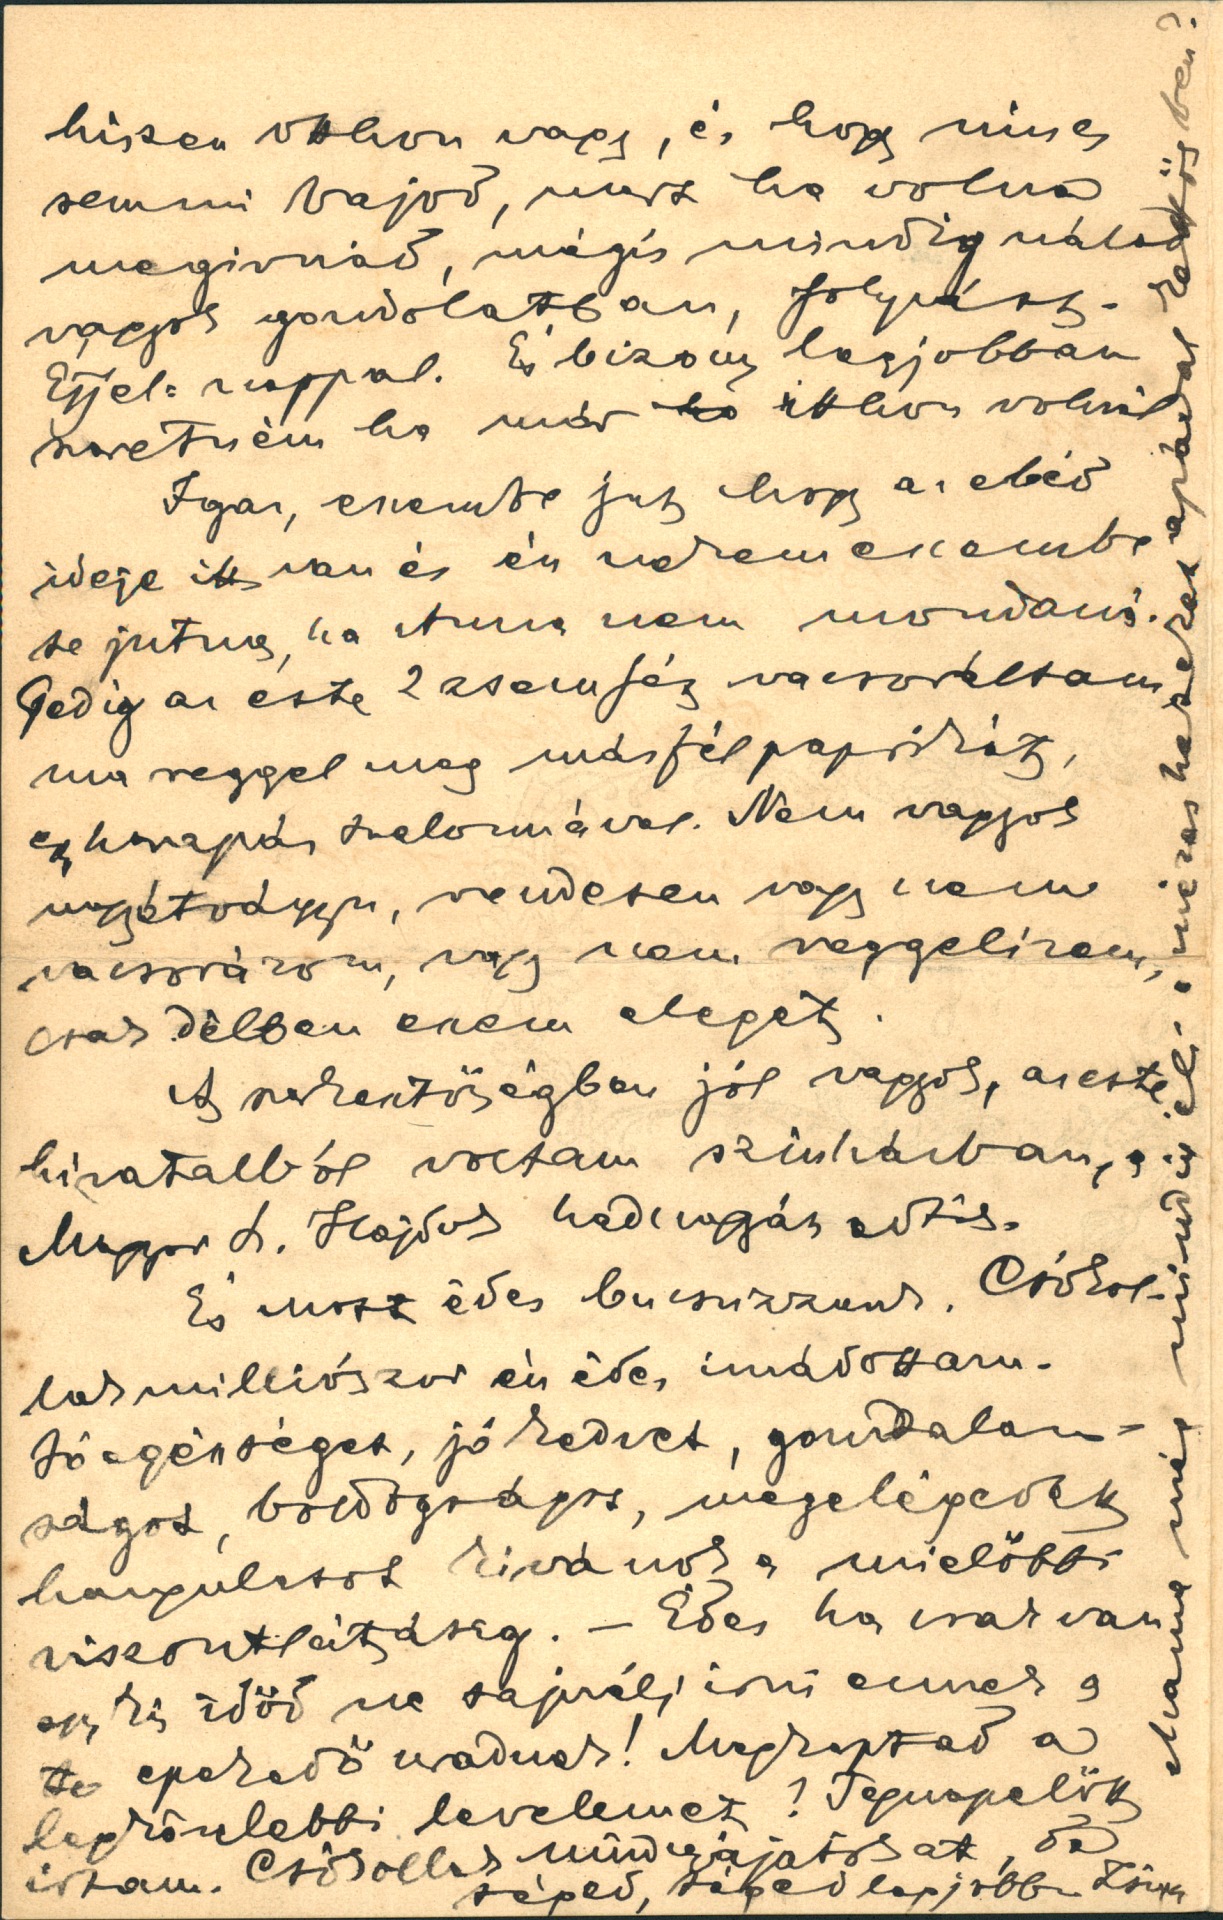 hiszen otthon vagy, és hogy nincs
semmi bajod, mert ha volna
megirnád, mégis mindig nálad
vagyok gondolatban, folyvást.
Éjjel-nappal. És bizony legjobban
szeretném ha már itthon volnál
Igaz, eszembe jut hogy az ebéd
ideje itt van és én nekem eszembe
se jutna, ha Anna nem mondaná.
Pedig az este 2 zsemlyét vacsoráltam
ma reggel meg másfél paprikát,
egy harapás szalonnával. Nem vagyok
nagyétvágyu, rendesen vagy nem
vacsorázom, vagy nem reggelizem,
csak délben eszem eleget.
A szerkesztőségben jól vagyok, az este
hivatalból voltam szinházban, a
Magyar L. Hajduk hadnagyát adták.
És most édes bucsuzzunk. Csókol-
lak milliószor én édes imádottam.
Jó egészséget, jó kedvet, gondtalan-
ságot, boldogságot, megelégedett
hangulatot kivánok a mielőbbi
viszontlátásig. — Édes ha csak van
egy kis időd ne sajnálj irni ennek a
te epekedő uradnak! Megkaptad a
legkönlebbi levelemet? Tegnapelőtt
irtam. Csókollak mindnyájatokat, de
téged, téged legjobban
Mama még mindig él: miért ha ezek apádat ben?